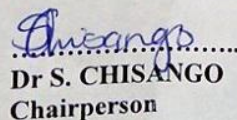 Chisango
Dr S. CHISANGO
Chairperson